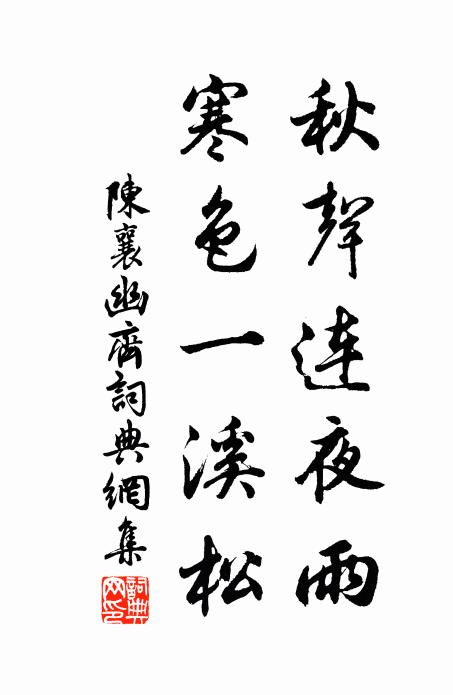 秋聲連夜雨
寒色一溪松
陳襄幽齋詞典網集
詞典網印